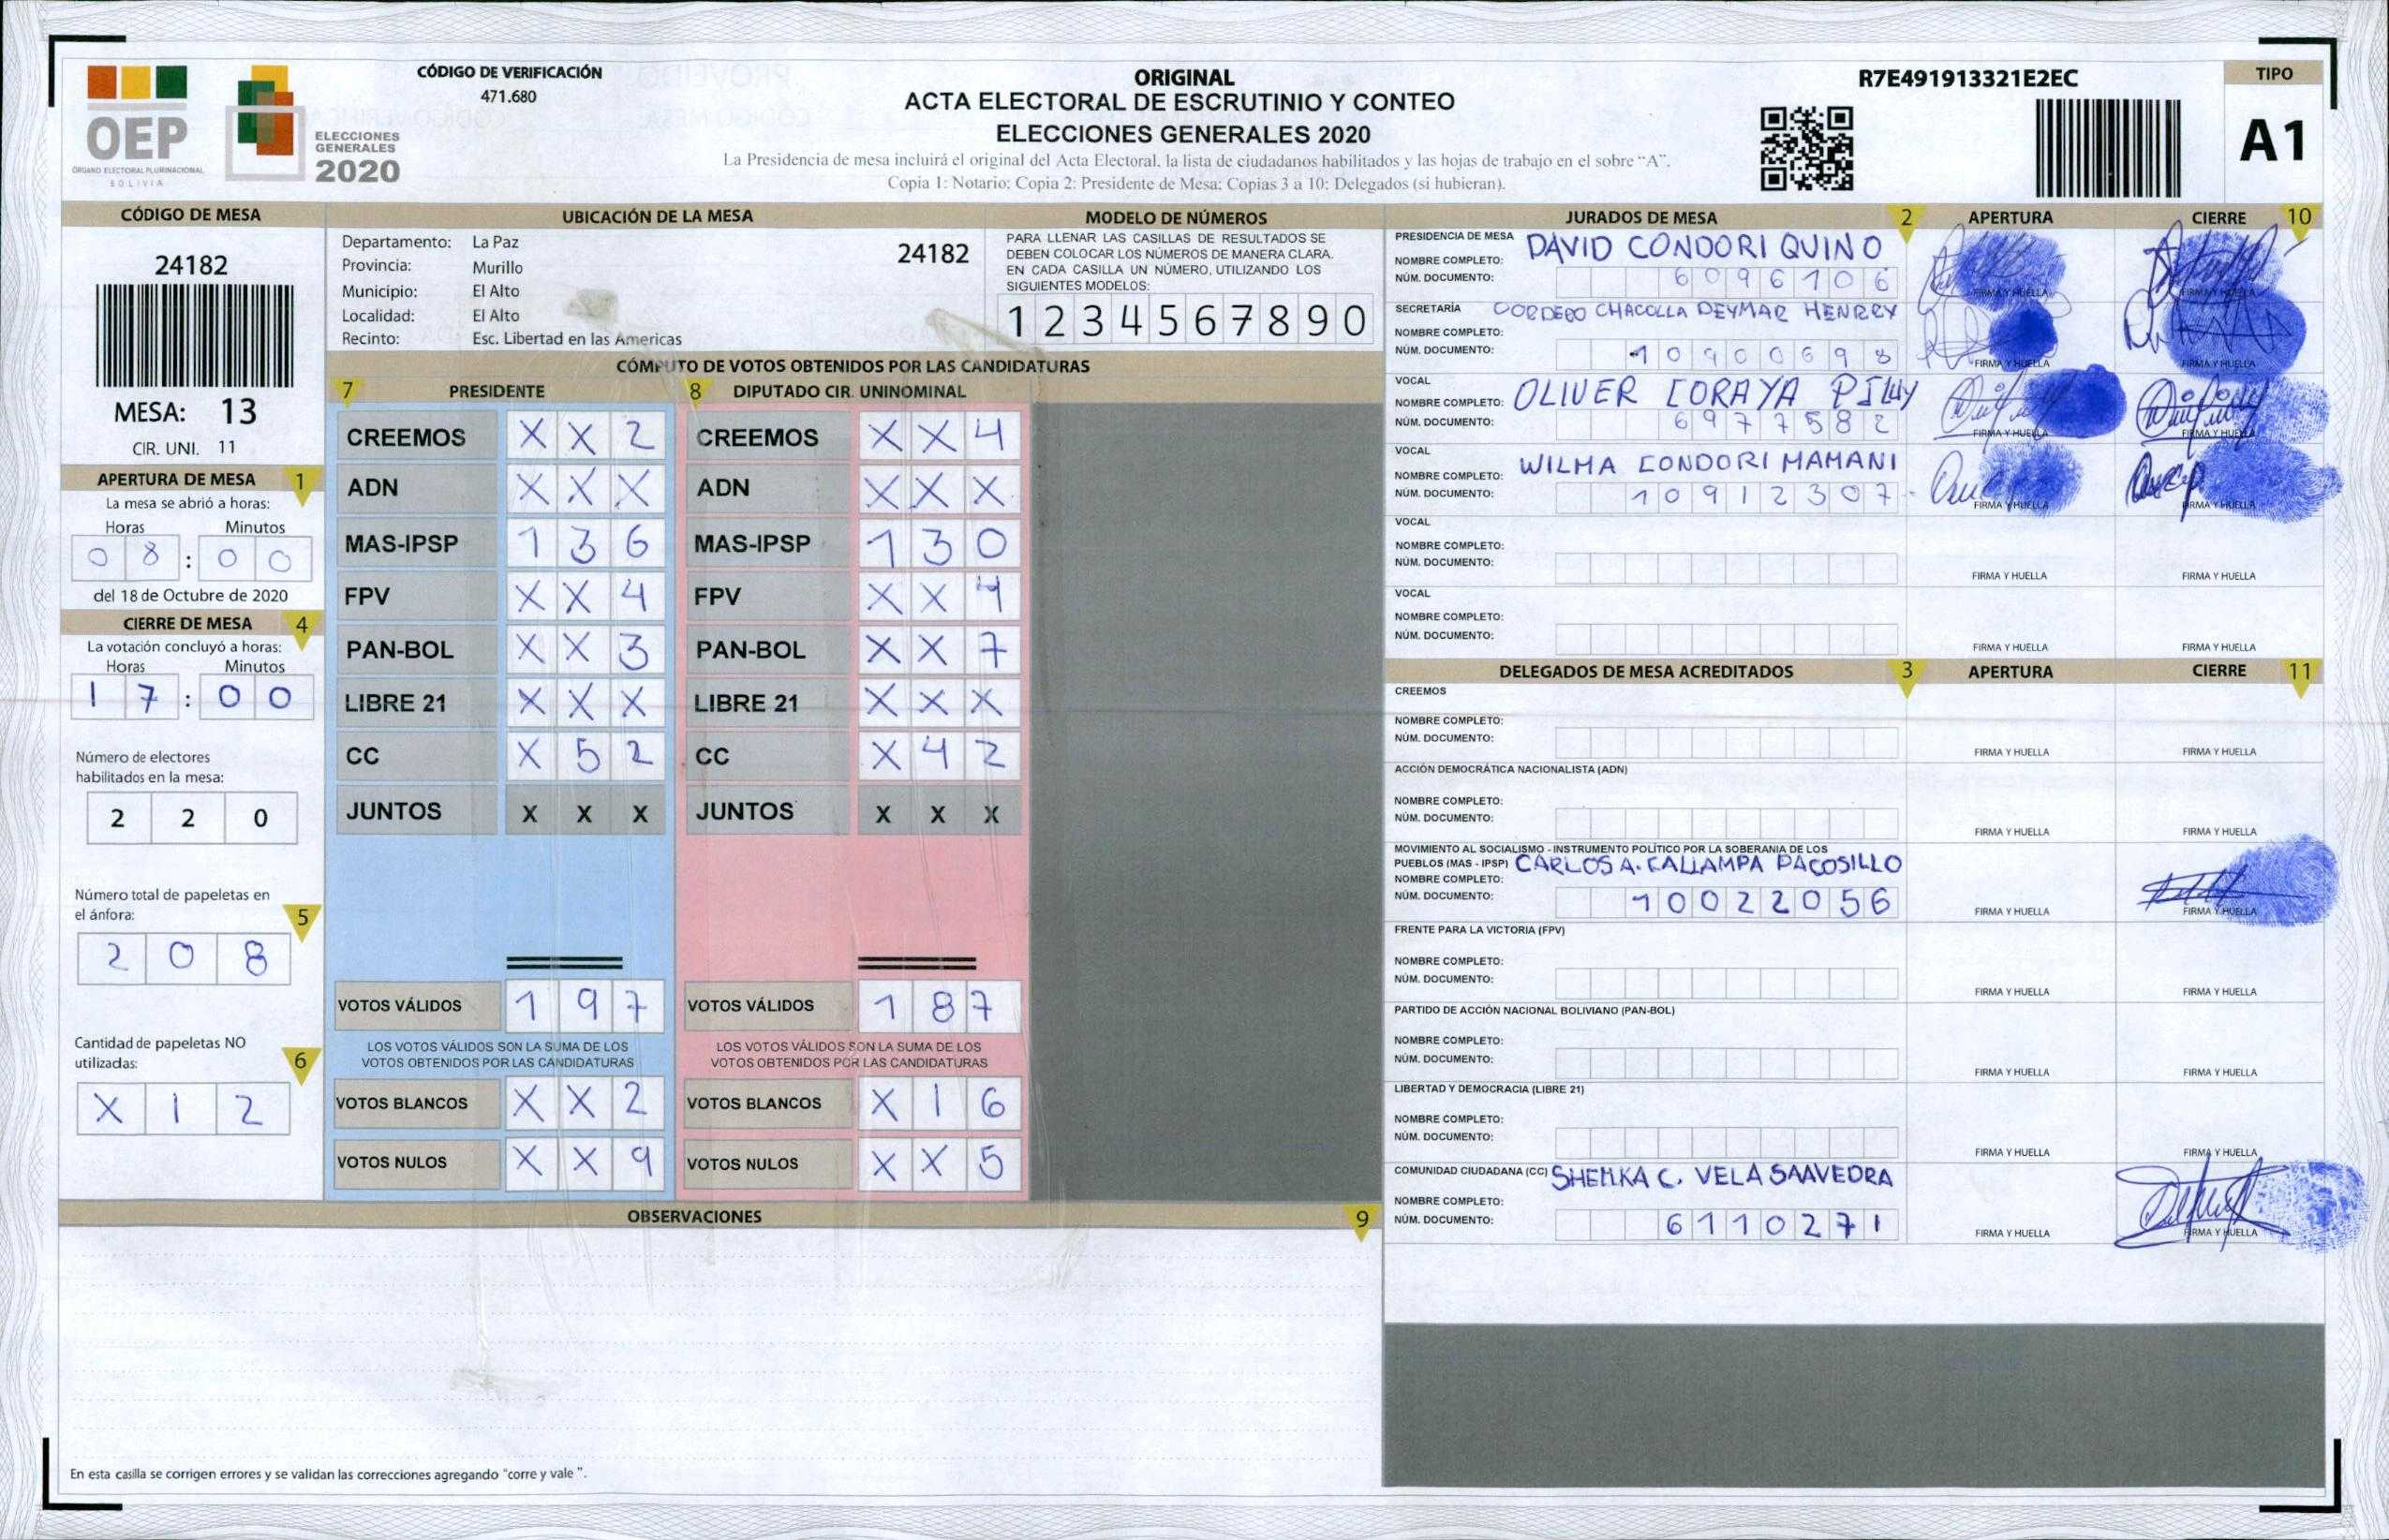 OEP
ÓRGANO ELECTORAL PLURINACIONAL
BOLIVIA
ELECCIONES
GENERALES
2020
CÓDIGO DE VERIFICACIÓN
471.680
ORIGINAL
ACTA ELECTORAL DE ESCRUTINIO Y CONTEO
ELECCIONES GENERALES 2020
La Presidencia de mesa incluirá el original del Acta Electoral, la lista de ciudadanos habilitados y las hojas de trabajo en el sobre "A".
Copia 1: Notario; Copia 2: Presidente de Mesa; Copias 3 a 10: Delegados (si hubieran).
R7E491913321E2EC
TIPO
A1
CÓDIGO DE MESA
24182
MESA: 13
CIR. UNI. 11
APERTURA DE MESA 1
La mesa se abrió a horas:
Horas Minutos
0 8 : 0 0
del 18 de Octubre de 2020
CIERRE DE MESA 4
La votación concluyó a horas:
Horas Minutos
1 7 : 0 0
Número de electores
habilitados en la mesa:
2 2 0
Número total de papeletas en
el ánfora: 5
2 0 8
Cantidad de papeletas NO
utilizadas: 6
X 1 2
UBICACIÓN DE LA MESA
Departamento: La Paz 24182
Provincia: Murillo
Municipio: El Alto
Localidad: El Alto
Recinto: Esc. Libertad en las Americas
MODELO DE NÚMEROS
PARA LLENAR LAS CASILLAS DE RESULTADOS SE
DEBEN COLOCAR LOS NÚMEROS DE MANERA CLARA.
EN CADA CASILLA UN NÚMERO, UTILIZANDO LOS
SIGUIENTES MODELOS:
1 2 3 4 5 6 7 8 9 0
CÓMPUTO DE VOTOS OBTENIDOS POR LAS CANDIDATURAS
7 PRESIDENTE 8 DIPUTADO CIR. UNINOMINAL
CREEMOS X X 2 CREEMOS X X 4
ADN X X X ADN X X X
MAS-IPSP 1 3 6 MAS-IPSP 1 3 0
FPV X X 4 FPV X X 4
PAN-BOL X X 3 PAN-BOL X X 7
LIBRE 21 X X X LIBRE 21 X X X
CC X 5 2 CC X 4 2
JUNTOS X X X JUNTOS X X X
VOTOS VÁLIDOS 1 9 7 VOTOS VÁLIDOS 1 8 7
LOS VOTOS VÁLIDOS SON LA SUMA DE LOS LOS VOTOS VÁLIDOS SON LA SUMA DE LOS
VOTOS OBTENIDOS POR LAS CANDIDATURAS VOTOS OBTENIDOS POR LAS CANDIDATURAS
VOTOS BLANCOS X X 2 VOTOS BLANCOS X 1 6
VOTOS NULOS X X 9 VOTOS NULOS X X 5
OBSERVACIONES 9
En esta casilla se corrigen errores y se validan las correcciones agregando "corre y vale ".
JURADOS DE MESA 2 APERTURA CIERRE 10
PRESIDENCIA DE MESA
NOMBRE COMPLETO: DAVID CONDORI QUINO
NÚM. DOCUMENTO: 6 0 9 6 1 0 6
FIRMA Y HUELLA FIRMA Y HUELLA
SECRETARÍA CORDERO CHACOLLA DEYMAR HENRRY
NOMBRE COMPLETO:
NÚM. DOCUMENTO: 1 0 9 0 0 6 9 8
FIRMA Y HUELLA FIRMA Y HUELLA
VOCAL
NOMBRE COMPLETO: OLIVER CORAYA
NÚM. DOCUMENTO: 6 9 7 7 5 8 2
FIRMA Y HUELLA FIRMA Y HUELLA
VOCAL
NOMBRE COMPLETO: WILMA CONDORI MAMANI
NÚM. DOCUMENTO: 1 0 9 1 2 3 0 7
FIRMA Y HUELLA FIRMA Y HUELLA
VOCAL
NOMBRE COMPLETO:
NÚM. DOCUMENTO:
FIRMA Y HUELLA FIRMA Y HUELLA
VOCAL
NOMBRE COMPLETO:
NÚM. DOCUMENTO:
FIRMA Y HUELLA FIRMA Y HUELLA
DELEGADOS DE MESA ACREDITADOS 3 APERTURA CIERRE 11
CREEMOS
NOMBRE COMPLETO:
NÚM. DOCUMENTO:
FIRMA Y HUELLA FIRMA Y HUELLA
ACCIÓN DEMOCRÁTICA NACIONALISTA (ADN)
NOMBRE COMPLETO:
NÚM. DOCUMENTO:
FIRMA Y HUELLA FIRMA Y HUELLA
MOVIMIENTO AL SOCIALISMO - INSTRUMENTO POLÍTICO POR LA SOBERANIA DE LOS
PUEBLOS (MAS - IPSP) CARLOS A. CALLAMPA PACOSILLO
NOMBRE COMPLETO:
NÚM. DOCUMENTO: 1 0 0 2 2 0 5 6
FIRMA Y HUELLA FIRMA Y HUELLA
FRENTE PARA LA VICTORIA (FPV)
NOMBRE COMPLETO:
NÚM. DOCUMENTO:
FIRMA Y HUELLA FIRMA Y HUELLA
PARTIDO DE ACCIÓN NACIONAL BOLIVIANO (PAN-BOL)
NOMBRE COMPLETO:
NÚM. DOCUMENTO:
FIRMA Y HUELLA FIRMA Y HUELLA
LIBERTAD Y DEMOCRACIA (LIBRE 21)
NOMBRE COMPLETO:
NÚM. DOCUMENTO:
FIRMA Y HUELLA FIRMA Y HUELLA
COMUNIDAD CIUDADANA (CC) SHEMKA C. VELA SAAVEDRA
NOMBRE COMPLETO:
NÚM. DOCUMENTO: 6 1 1 0 2 7 1
FIRMA Y HUELLA FIRMA Y HUELLA